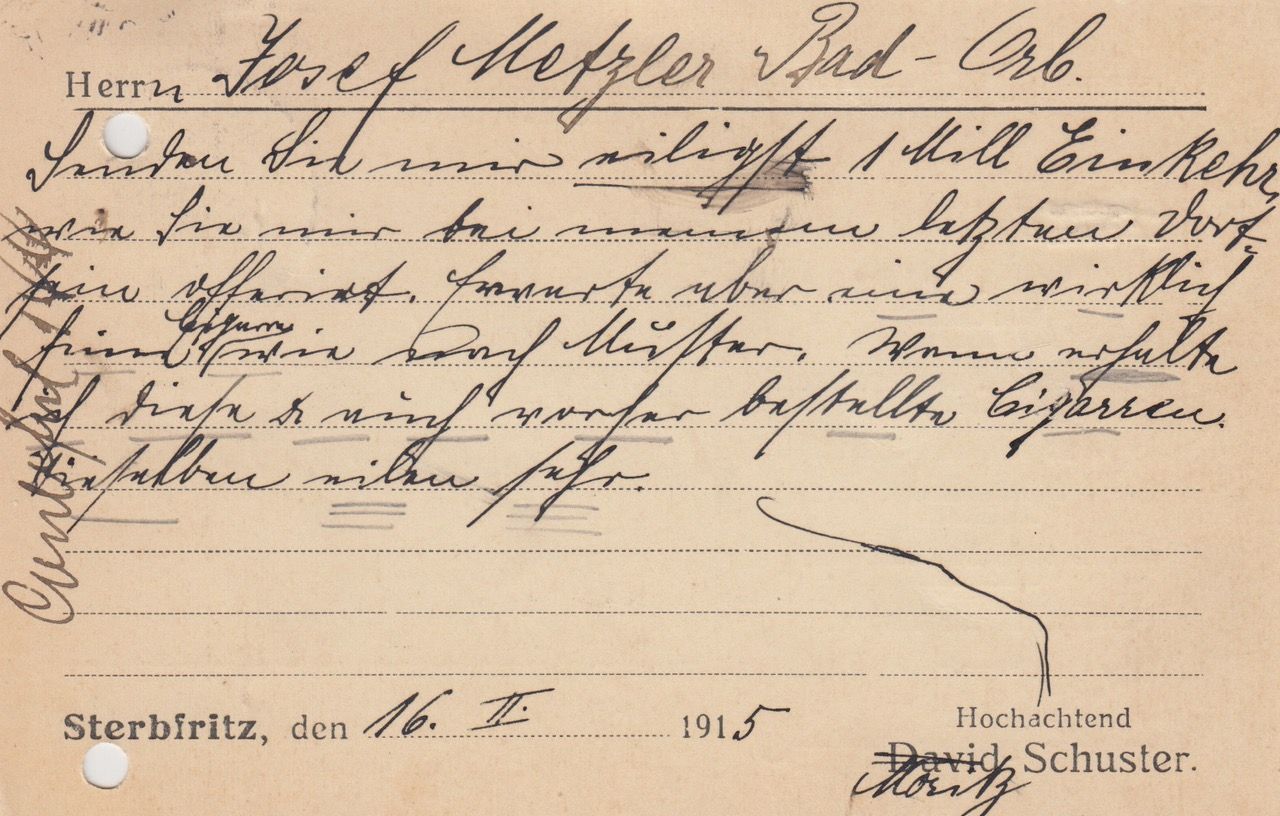 Herrn Josef Metzler Bad-Orb.
Senden Sie mir eiligst 1 Mill Einkehr,
wie Sie mir bei meinem letzten Dort-
sein offeriert. Erwarte aber eine wirklich
feine Cigarre wie nach Muster. Wann erhalte
ich diese & auch vorher bestellte Cigarren.
Dieselben eilen sehr.
Sterbfritz, den 16. II. 1915
Hochachtend
David Schuster.
Moritz